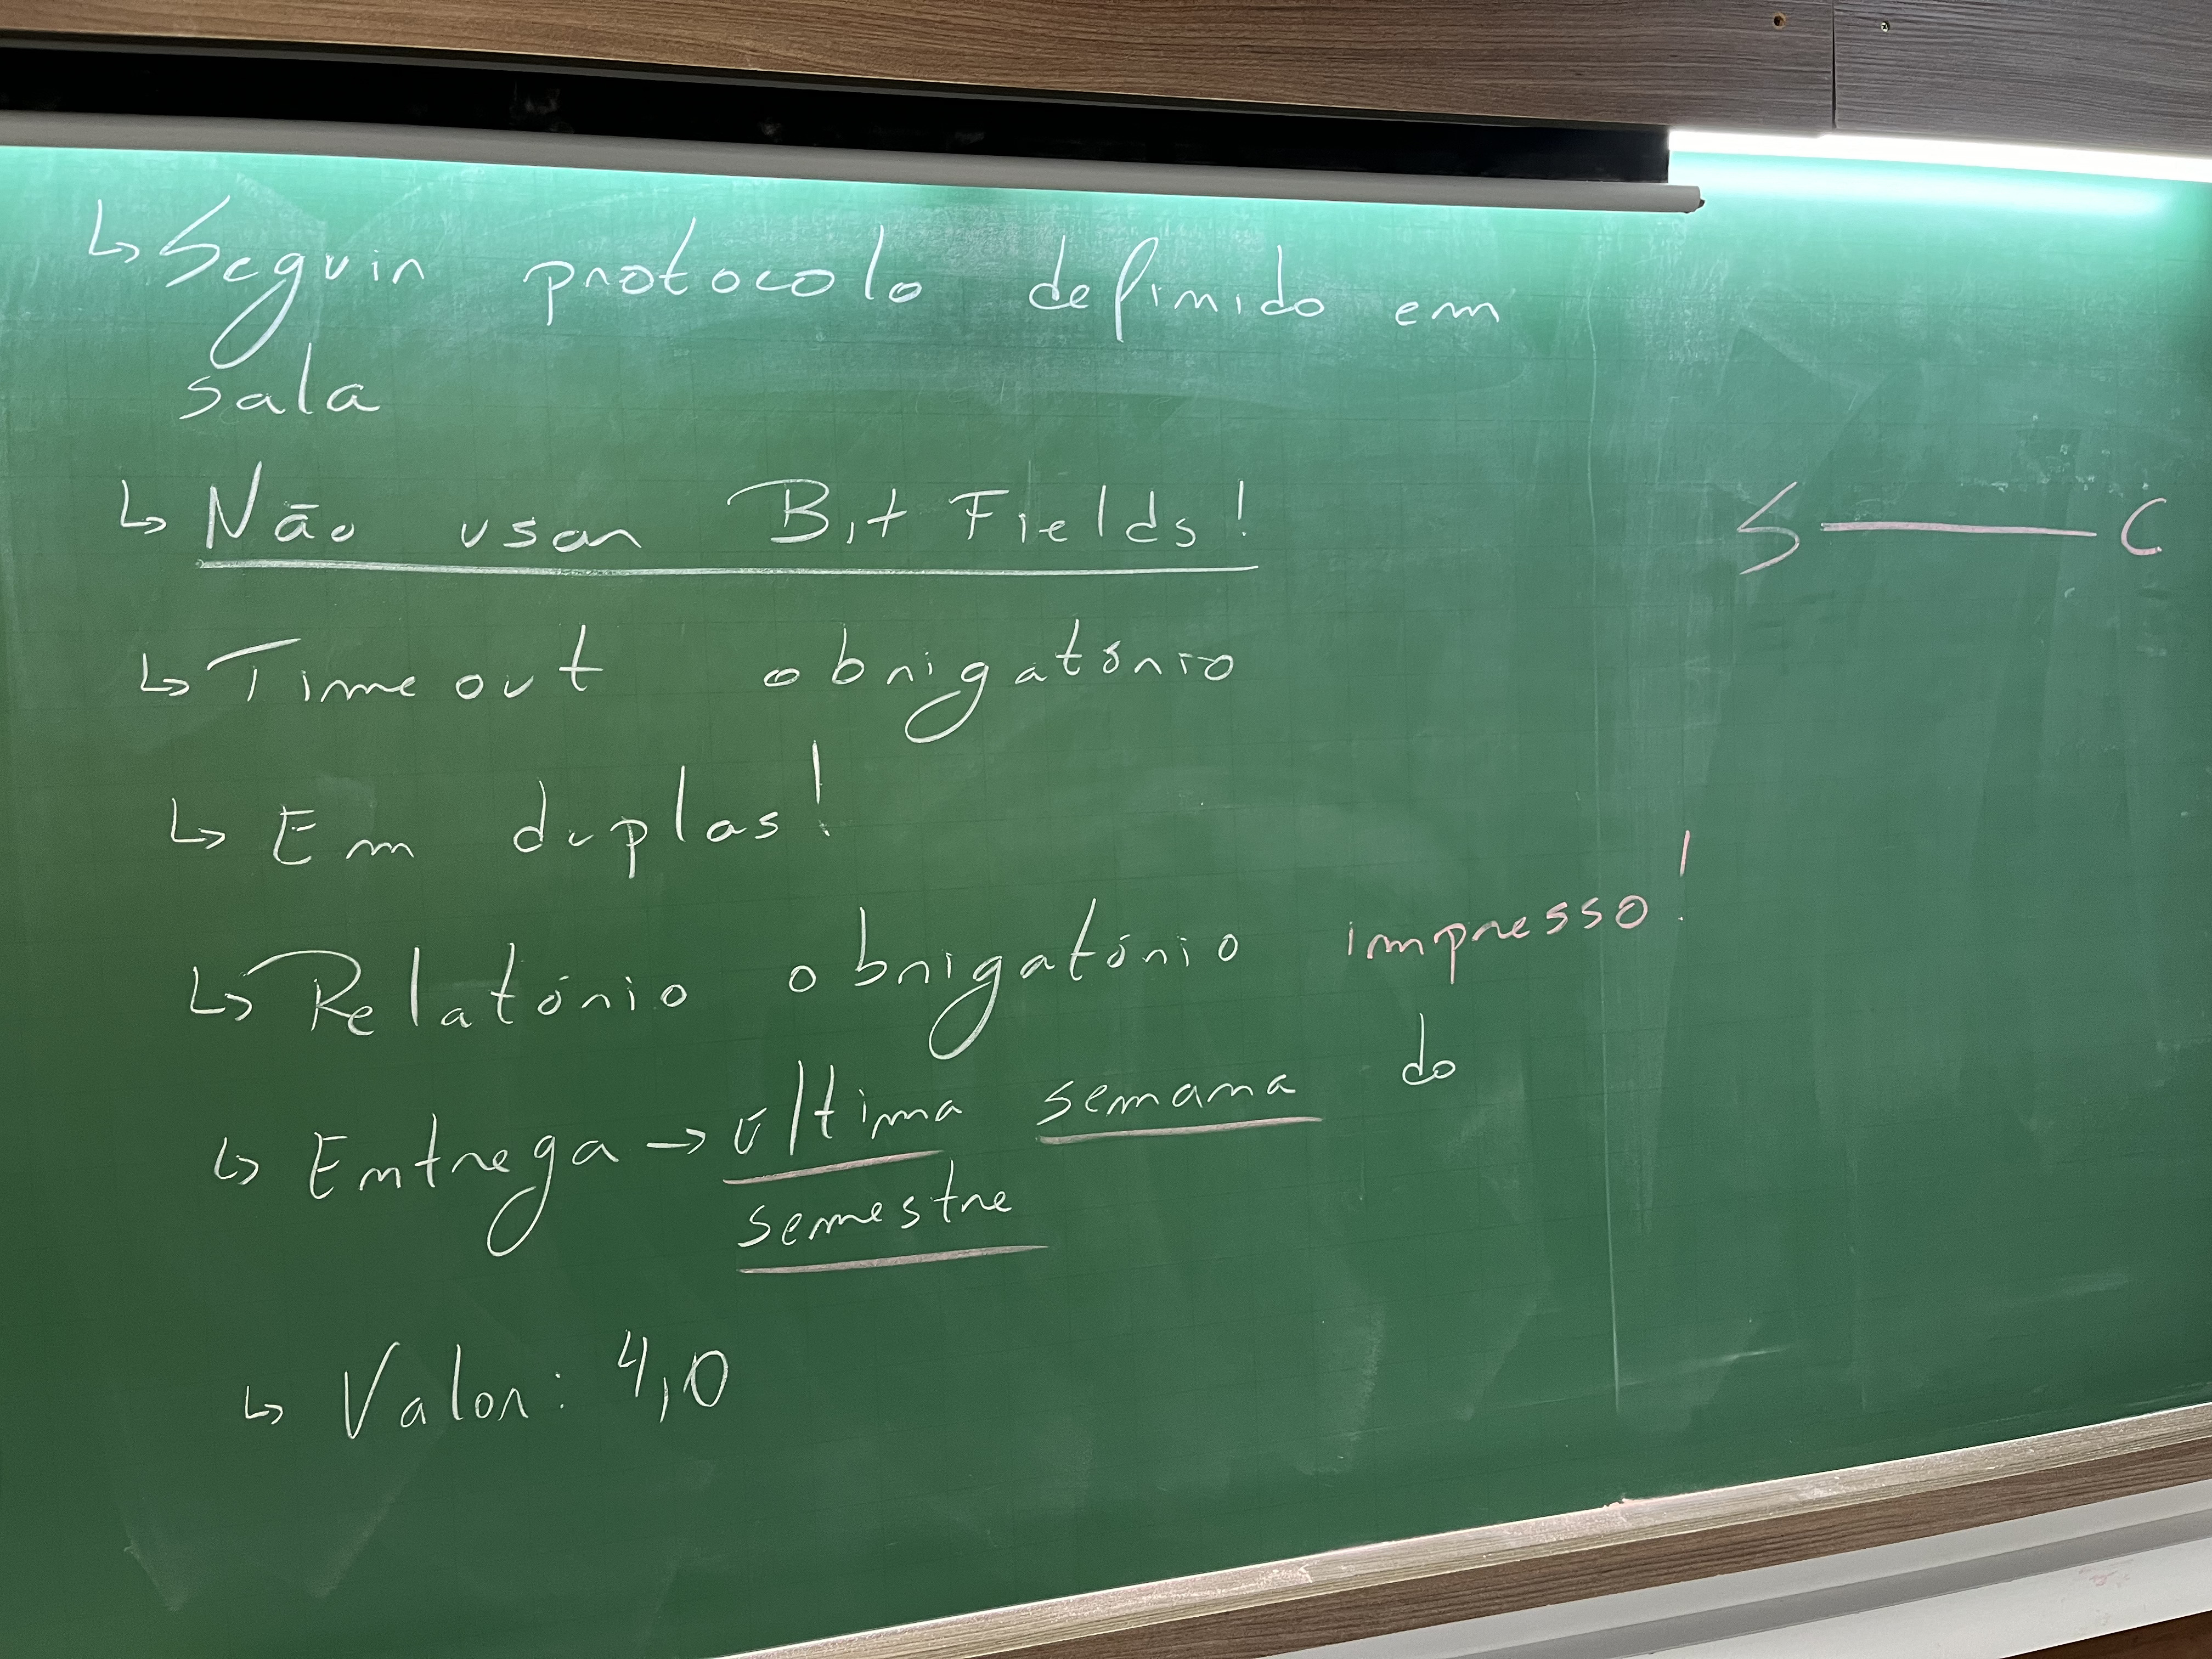 ↳ Seguir protocolo definido em
sala
↳ Não usar Bit Fields!
S — C
↳ Timeout obrigatório
↳ Em duplas!
↳ Relatório obrigatório impresso!
↳ Entrega → última semana do
semestre
↳ Valor: 4,0